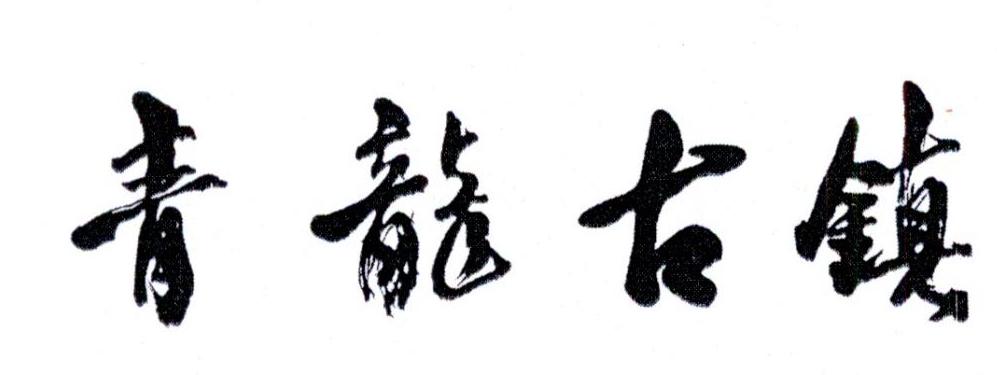 青龍古鎮